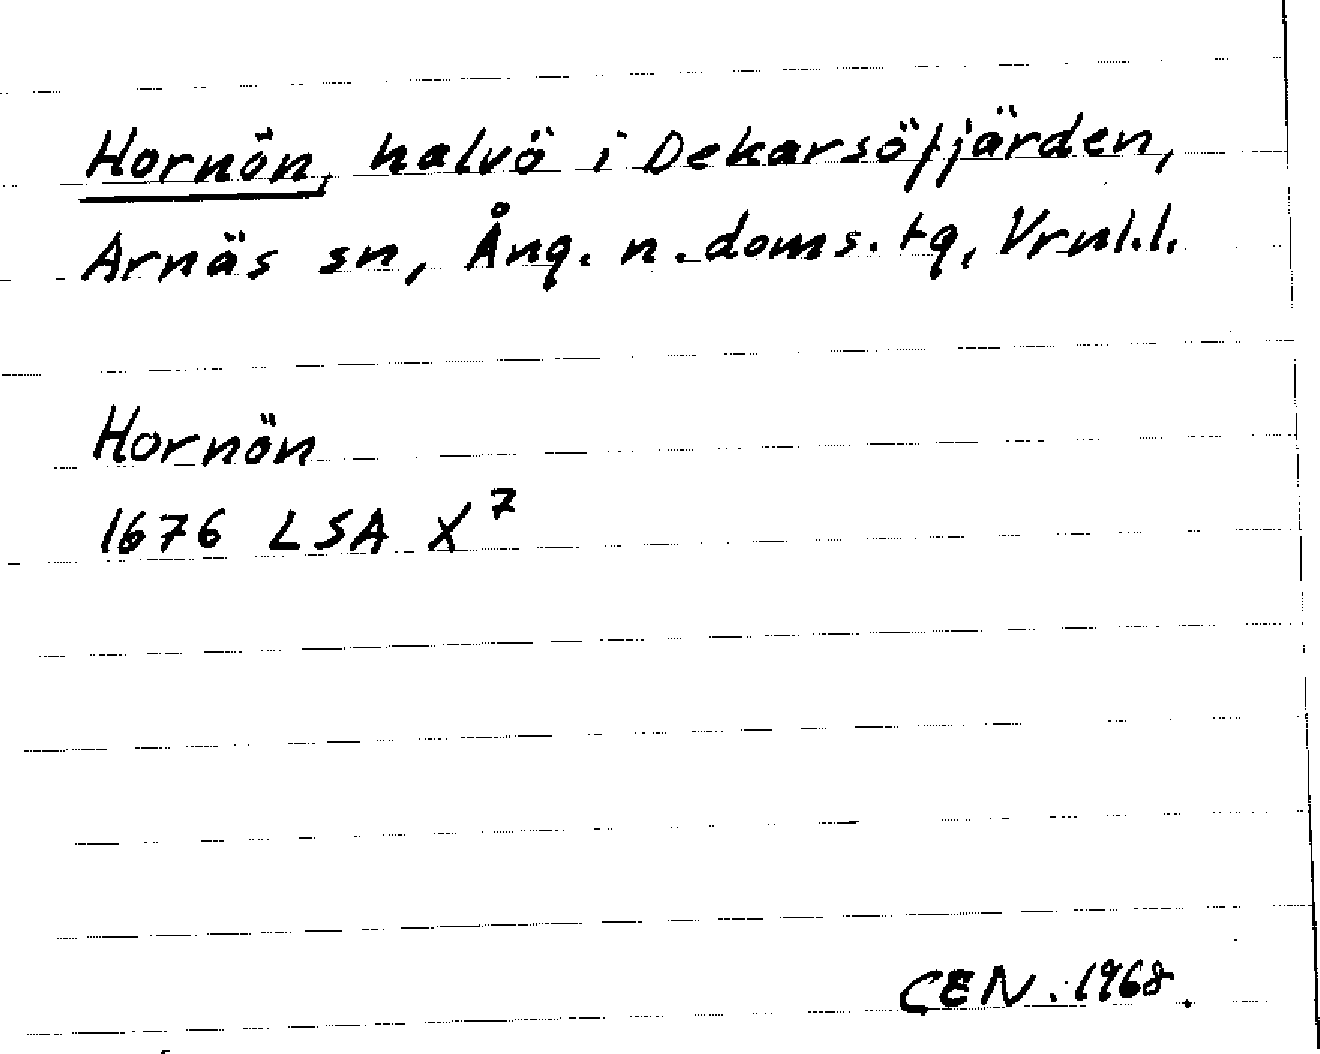 Hornön, halvö i Dekarsöfjärden,
Arnäs sn, Ång. n. doms. tg, Vrnl.l.
Hornön
1676 LSA X⁷
CEN. 1968.